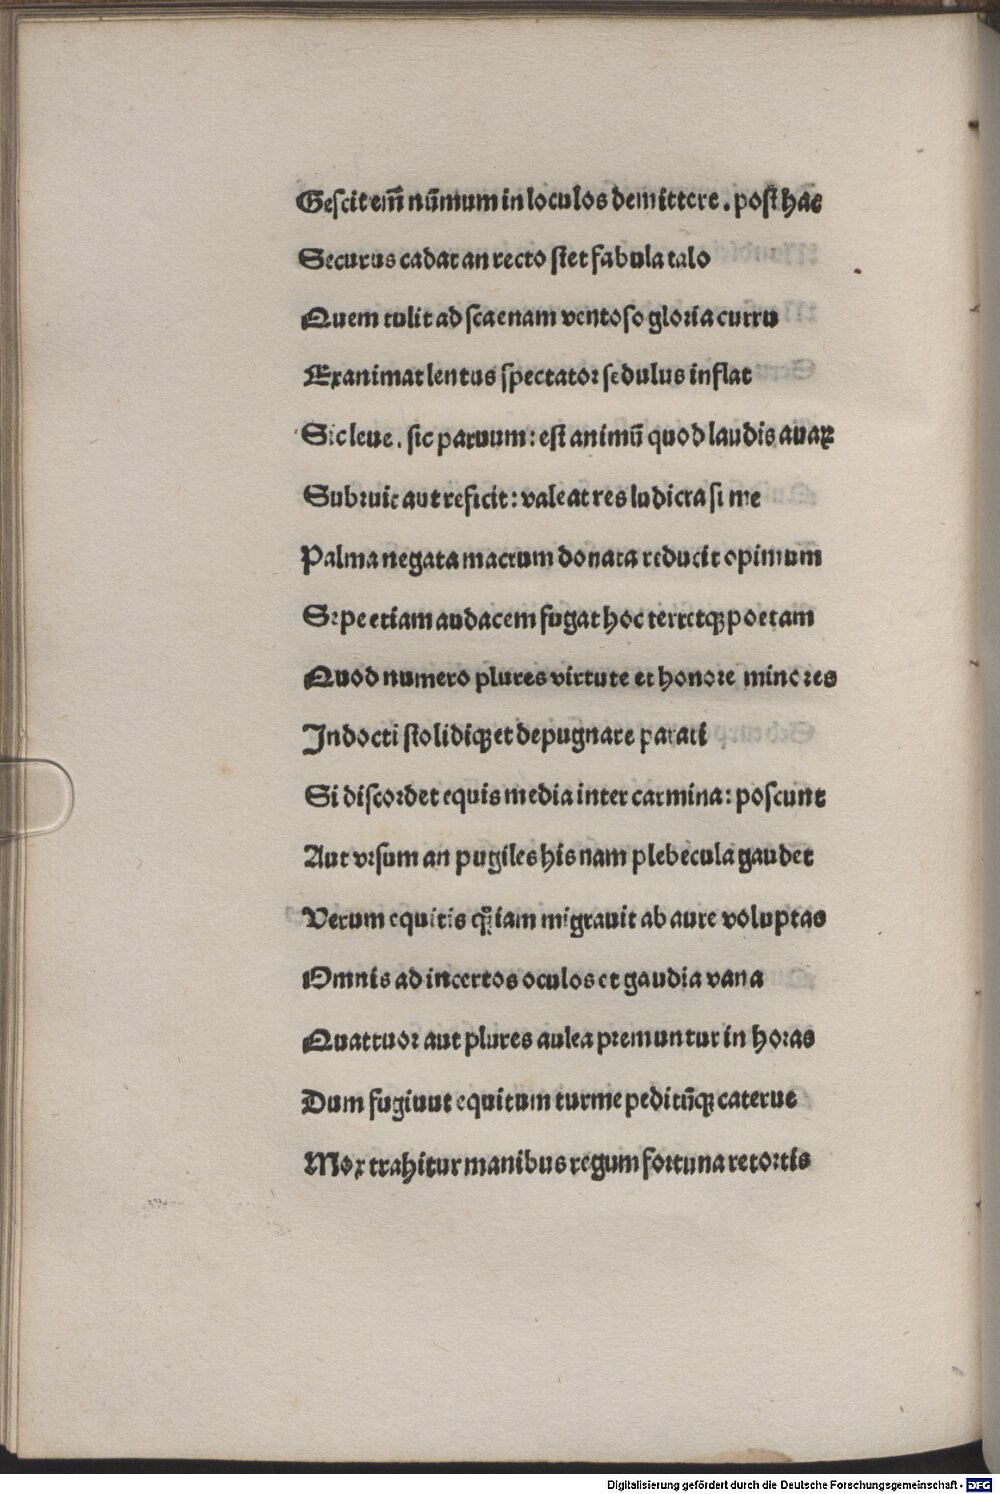 Gescit em̄ nūmum in loculos demittere . post hac
Securus cadat an recto stet fabula talo
Quem tulit ad scaenam ventoso gloria curru
Exanimat lentus spectator sedulus inflat
Sic leue . sic paruum : est animū quod laudis auaꝝ
Subruit aut reficit : valeat res ludicra si me
Palma negata macrum donata reducit opimum
Sepe etiam audacem fugat hoc terretqꝫ poetam
Quod numero plures virtute et honore minores
Indocti stolidiqꝫ et depugnare parati
Si discordet equis media inter carmina : poscunt
Aut vrsum an pugiles his nam plebecula gaudet
Verum equitis qm̄ iam migrauit ab aure voluptas
Omnis ad incertos oculos et gaudia vana
Quattuor aut plures aulea premuntur in horas
Dum fugiuut equitum turme peditūqꝫ caterue
Mox trahitur manibus regum fortuna retortis
Digitalisierung gefördert durch die Deutsche Forschungsgemeinschaft - DFG